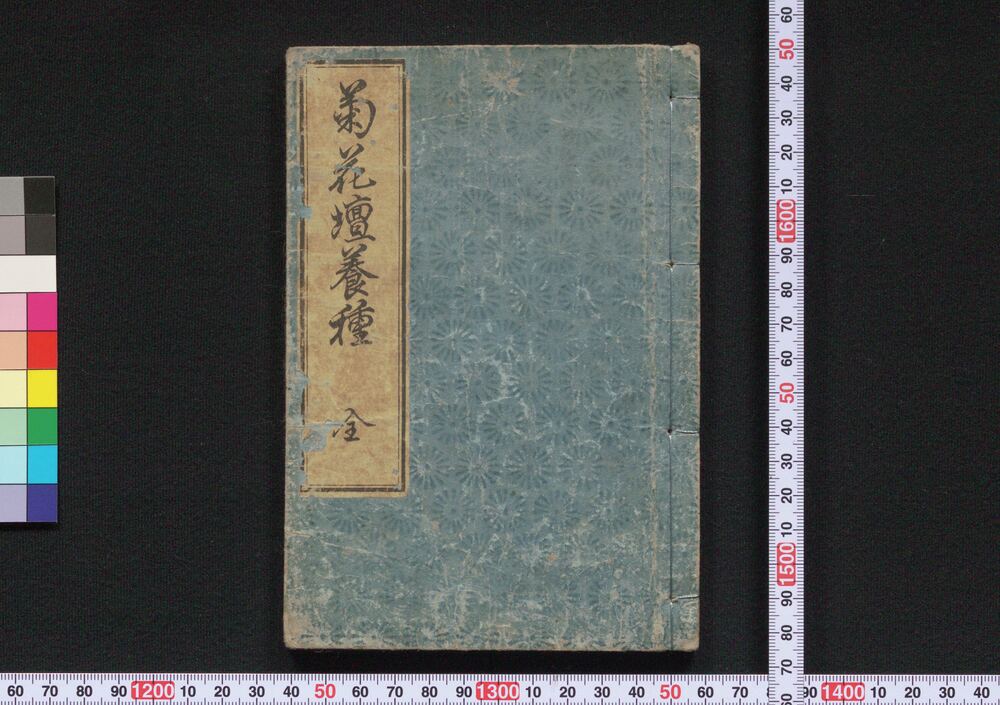 菊花壇養種 全
60
50
40
30
20
10
1600
90
80
70
60
50
40
30
20
10
1500
90
80
70
60
60 70 80 90 1200 10 20 30 40 50 60 70 80 90 1300 10 20 30 40 50 60 70 80 90 1400 10 20 30 40